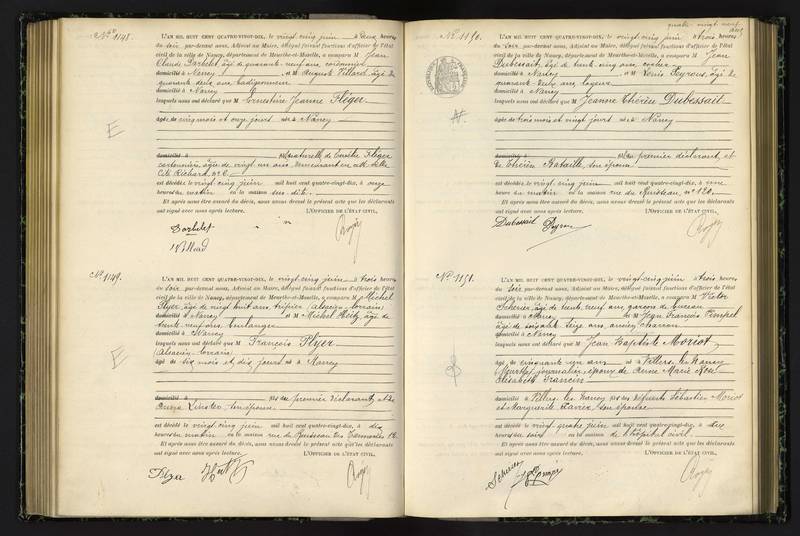 N° 1148.
L'AN MIL HUIT CENT QUATRE-VINGT-DIX, le vingt cinq juin à deux heures
du soir par-devant nous, Adjoint au Maire, délégué faisant fonctions d'officier de l'état
civil de la ville de Nancy, département de Meurthe-et-Moselle, a comparu M Jean
Claude âgé de quarante neuf ans, cordonnier
domicilié à Nancy et M Auguste Villard, âgé de
quarante deux ans
domicilié à Nancy
lesquels nous ont déclaré que M Ernestine Jeanne Fléger
âgée de cinq mois et onze jours née à Nancy
domicilié à naturelle de Fléger
âgée de vingt un ans, demeurant en cette ville
Cité Richard, n° 6
est décédée le vingt cinq juin mil huit cent quatre-vingt-dix, à onze
heures du matin en la maison sus dite
Et après nous être assuré du décès, nous avons dressé le présent acte que les déclarants
ont signé avec nous après lecture. L'OFFICIER DE L'ÉTAT CIVIL,
Villard
N° 1149.
E
L'AN MIL HUIT CENT QUATRE-VINGT-DIX, le vingt cinq juin à trois heures
du soir par-devant nous, Adjoint au Maire, délégué faisant fonctions d'officier de l'état
civil de la ville de Nancy, département de Meurthe-et-Moselle, a comparu M Michel
Flyer, âgé de vingt huit ans, tripier (alsacien-lorrain)
domicilié à Nancy et M Michel âgé de
trente neuf ans, boulanger
domicilié à Nancy
lesquels nous ont déclaré que M François Flyer
(Alsacien-lorrain)
âgé de six mois et dix jours né à Nancy
domicilié à fils du premier déclarant, et de
Linster, son épouse
est décédé le vingt cinq juin mil huit cent quatre-vingt-dix, à dix
heures du matin en la maison rue du Ruisseau des
Et après nous être assuré du décès, nous avons dressé le présent acte que les déclarants
ont signé avec nous après lecture. L'OFFICIER DE L'ÉTAT CIVIL,
Flyer
quatre vingt neuf
N° 1150.
L'AN MIL HUIT CENT QUATRE-VINGT-DIX, le vingt cinq juin à trois heures
du soir par-devant nous, Adjoint au Maire, délégué faisant fonctions d'officier de l'état
civil de la ville de Nancy, département de Meurthe-et-Moselle, a comparu M Jean
Dubessait, âgé de trente cinq ans, cocher
domicilié à Nancy et M Denis Peyrous, âgé de
quarante deux ans
domicilié à Nancy
lesquels nous ont déclaré que M Jeanne Thérèse Dubessait
âgée de trois mois et vingt jours née à Nancy
domiciliée à du premier déclarant, et
de Thérèse Bataille, son épouse
est décédée le vingt cinq juin mil huit cent quatre-vingt-dix, à une
heure du matin en la maison rue du Montreau, n° 120
Et après nous être assuré du décès, nous avons dressé le présent acte que les déclarants
ont signé avec nous après lecture. L'OFFICIER DE L'ÉTAT CIVIL,
Dubessait
N° 1151.
L'AN MIL HUIT CENT QUATRE-VINGT-DIX, le vingt cinq juin à trois heures
du soir par-devant nous, Adjoint au Maire, délégué faisant fonctions d'officier de l'état
civil de la ville de Nancy, département de Meurthe-et-Moselle, a comparu M Victor
Scherier, âgé de trente neuf ans, garçon de bureau
domicilié à Nancy et M Jean François
âgé de soixante seize ans, ancien charron
domicilié à Nancy
lesquels nous ont déclaré que M Jean Baptiste Moriot
âgé de cinquante un ans né à Villers les Nancy
(Meurthe) journalier, époux de Anne Marie
Elisabeth Francin
domicilié à Villers les Nancy fils des défunts Sébastien Moriot
et Marguerite Xavier, son épouse
est décédé le vingt quatre juin mil huit cent quatre-vingt-dix, à
heures du soir en la maison de l'hôpital civil
Et après nous être assuré du décès, nous avons dressé le présent acte que les déclarants
ont signé avec nous après lecture. L'OFFICIER DE L'ÉTAT CIVIL,
Scherier